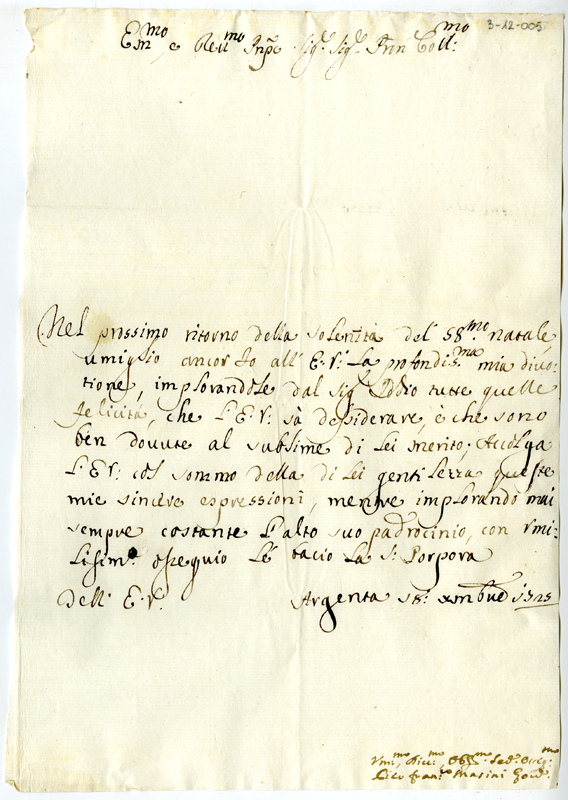 3-12-005
Em.mo e Reu.mo Inpē Sig.r Sig.r Pñn Coll:mo
Nel prossimo ritorno della solennità del SS.mo natale,
umiglio ancor Io all' E.V. La profondis.ma mia divo:
tione, implorandole dal Sig.r Iddio tutte quelle
felicità, che L'E.V: sà desiderare, e che sono
ben dovute al sublime di Lei merito; Accolga
L'E.V: col sommo della di Lei gentilezza queste
mie sincere espressioni, mentre implorando mai
sempre costante l'alto suo padrocinio, con vmi:
lissim.o ossequio Le bacio La S: Porpora
Dell' E.V. Argenta
Vmi.mo Diu.mo Obb.mo
Fran.o Masini